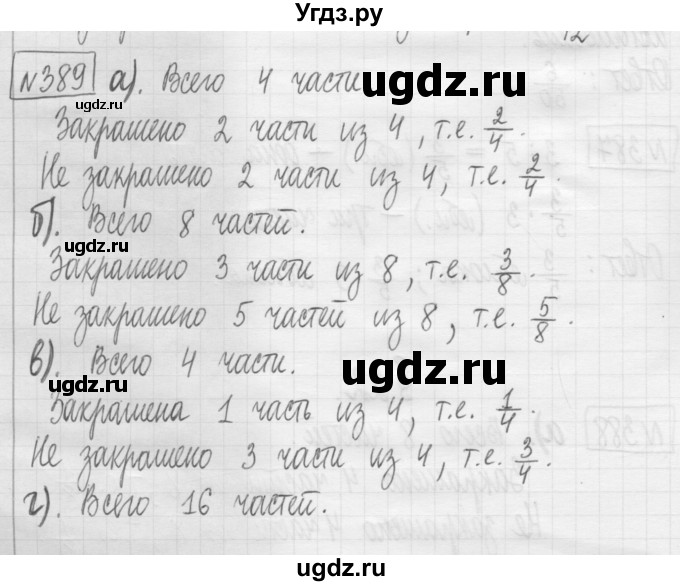 Угдз.ру
№389 а). Всего 4 части
Закрашено 2 части из 4, т.е. 2/4.
Не закрашено 2 части из 4, т.е. 2/4.
б). Всего 8 частей.
Закрашено 3 части из 8, т.е. 3/8.
Не закрашено 5 частей из 8, т.е. 5/8.
в). Всего 4 части.
Закрашена 1 часть из 4, т.е. 1/4.
Не закрашено 3 части из 4, т.е. 3/4.
г). Всего 16 частей.
ugdz.ru
ugdz.ru
ugdz.ru
ugdz.ru
ugdz.ru
ugdz.ru
ugdz.ru
ugdz.ru
ugdz.ru